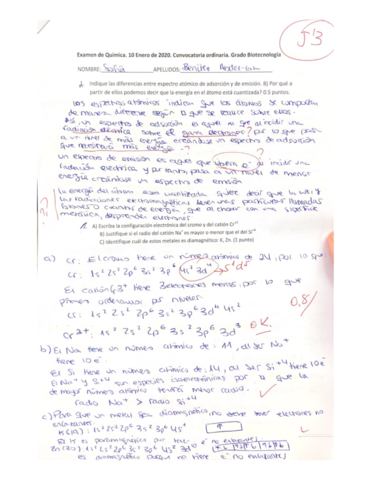 5'3
Examen de Química. 10 Enero de 2020. Convocatoria ordinaria. Grado Biotecnología
NOMBRE: Sofía APELLIDOS: Benítez
Indique las diferencias entre espectro atómico de adsorción y de emisión. B) Por qué a
partir de ellos podemos decir que la energía en el átomo está cuantizada? 0.5 puntos.
los espectros atómicos indican que los átomos se comportan
de manera diferente según lo que se realice sobre ellos.
un espectro de adsorción es aquel que al incidir una
radiación eléctrica sobre él gana electrones? por lo que pasa
a un nivel de más energía creándose un espectro de adsorción
que necesitará más energía -?
un espectro de emisión es aquel que al incidir una
radiación eléctrica y por tanto, pasa a un nivel de menor
energía creándose un espectro de emisión
la energía del átomo está cuantizada quiere decir que la luz y
las radiaciones electromagnéticas partículas llamadas
fotones o de energía, que al chocar con una superficie
metálica, desprenden electrones
A) Escriba la configuración electrónica del cromo y del catión Cr³⁺
B) Justifique si el radio del catión Na⁺ es mayor o menor que el del Si⁴⁺
C) Identifique cuál de estos metales es diamagnético: K, Zn. (1 punto)
a) Cr: El cromo tiene un número atómico de 24, por lo que
Cr: 1s² 2s² 2p⁶ 3s² 3p⁶ 4s² 3d⁴ → s¹d⁵
El catión +3 tiene 3 electrones menos, por lo que
primero ordenamos por niveles
0,8/
Cr³⁺: 1s² 2s² 2p⁶ 3s² 3p⁶ 3d³ OK.
b) El Na tiene un número atómico de: 11, al ser Na⁺
tiene 10 e⁻
El Si tiene un número atómico de: 14, al ser Si⁺⁴ tiene 10 e⁻
El Na⁺ y Si⁺⁴ son especies isoelectrónicas por lo que la
de mayor número atómico tendrá menor radio.
radio Na⁺ > radio Si⁺⁴
c) Para que un metal sea diamagnético, no debe tener electrones
K (19): 1s² 2s² 2p⁶ 3s² 3p⁶ 4s¹
El K es paramagnético por tener e⁻
es diamagnético porque no tiene e⁻